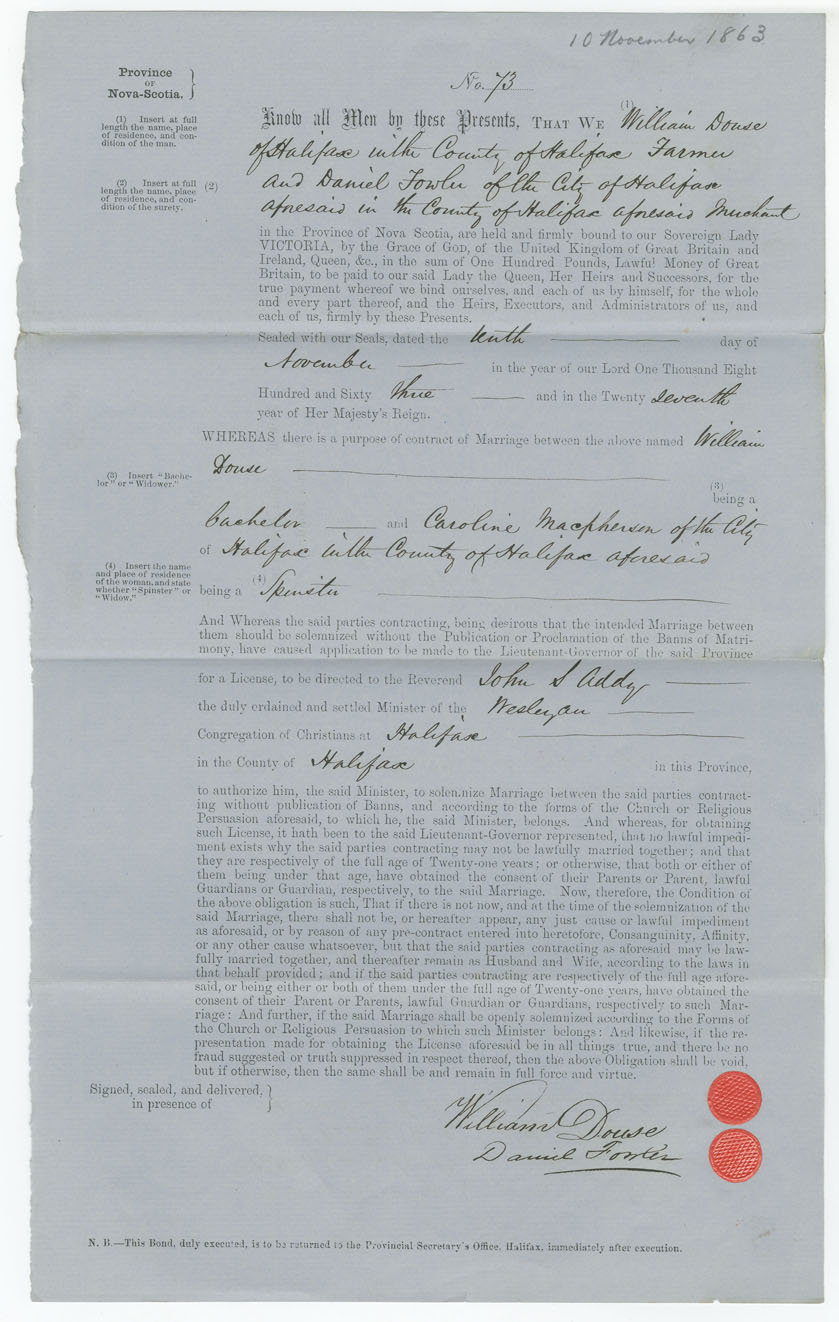 10 November 1863
Province
OF
Nova-Scotia.
No. 73
(1) Insert at full
length the name, place
of residence, and con-
dition of the man.
(2) Insert at full
length the name, place
of residence, and con-
dition of the surety.
Know all Men by these Presents, THAT WE (1) William Douse
of Halifax in the County of Halifax Farmer
(2) and Daniel Fowler of the City of Halifax
aforesaid in the County of Halifax aforesaid Merchant
in the Province of Nova Scotia, are held and firmly bound to our Sovereign Lady
VICTORIA, by the Grace of GOD, of the United Kingdom of Great Britain and
Ireland, Queen, &c., in the sum of One Hundred Pounds, Lawful Money of Great
Britain, to be paid to our said Lady the Queen, Her Heirs and Successors, for the
true payment whereof we bind ourselves, and each of us by himself, for the whole
and every part thereof, and the Heirs, Executors, and Administrators of us, and
each of us, firmly by these Presents.
Sealed with our Seals, dated the tenth day of
November in the year of our Lord One Thousand Eight
Hundred and Sixty three and in the Twenty seventh
year of Her Majesty's Reign.
WHEREAS there is a purpose of contract of Marriage between the above named William
Douse
(3) Insert "Bache-
lor" or "Widower."
(3)
being a
bachelor and Caroline Macpherson of the City
of Halifax in the County of Halifax aforesaid
(4) Insert the name
and place of residence
of the woman, and state
whether "Spinster" or
"Widow."
being a (4) Spinster
And Whereas the said parties contracting, being desirous that the intended Marriage between
them should be solemnized without the Publication or Proclamation of the Banns of Matri-
mony, have caused application to be made to the Lieutenant-Governor of the said Province
for a License, to be directed to the Reverend John S Addy
the duly ordained and settled Minister of the Wesleyan
Congregation of Christians at Halifax
in the County of Halifax in this Province,
to authorize him, the said Minister, to solemnize Marriage between the said parties contract-
ing without publication of Banns, and according to the forms of the Church or Religious
Persuasion aforesaid, to which he, the said Minister, belongs. And whereas, for obtaining
such License, it hath been to the said Lieutenant-Governor represented, that no lawful impedi-
ment exists why the said parties contracting may not be lawfully married together; and that
they are respectively of the full age of Twenty-one years; or otherwise, that both or either of
them being under that age, have obtained the consent of their Parents or Parent, lawful
Guardians or Guardian, respectively, to the said Marriage. Now, therefore, the Condition of
the above obligation is such, That if there is not now, and at the time of the solemnization of the
said Marriage, there shall not be, or hereafter appear, any just cause or lawful impediment
as aforesaid, or by reason of any pre-contract entered into heretofore, Consanguinity, Affinity,
or any other cause whatsoever, but that the said parties contracting as aforesaid may be law-
fully married together, and thereafter remain as Husband and Wife, according to the laws in
that behalf provided; and if the said parties contracting are respectively of the full age afore-
said, or being either or both of them under the full age of Twenty-one years, have obtained the
consent of their Parent or Parents, lawful Guardian or Guardians, respectively to such Mar-
riage: And further, if the said Marriage shall be openly solemnized according to the Forms of
the Church or Religious Persuasion to which such Minister belongs: And likewise, if the re-
presentation made for obtaining the License aforesaid be in all things true, and there be no
fraud suggested or truth suppressed in respect thereof, then the above Obligation shall be void,
but if otherwise, then the same shall be and remain in full force and virtue.
Signed, sealed, and delivered,
in presence of
William Douse
Daniel Fowler
N. B.—This Bond, duly executed, is to be returned to the Provincial Secretary's Office, Halifax, immediately after execution.